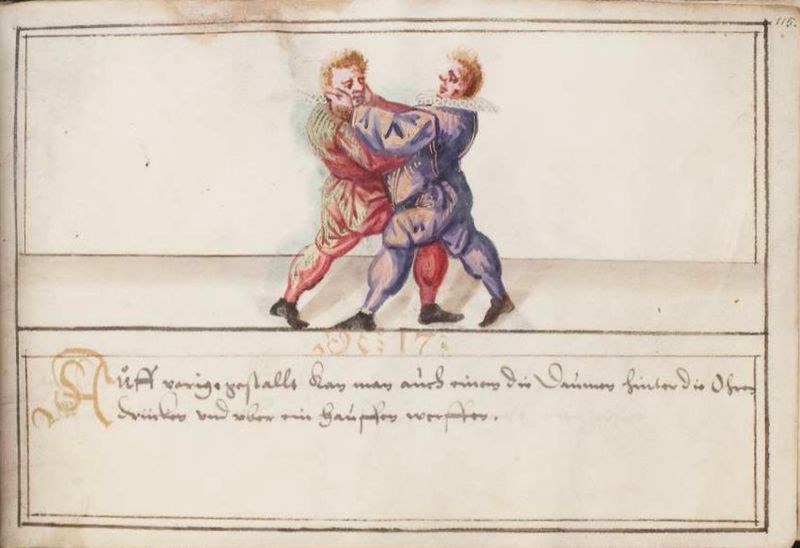 116.
17:
Auff vorige gestallt kan man auch einem die Daumen hinter die Ohren
drücken vnd vber ein hauffen werffen.